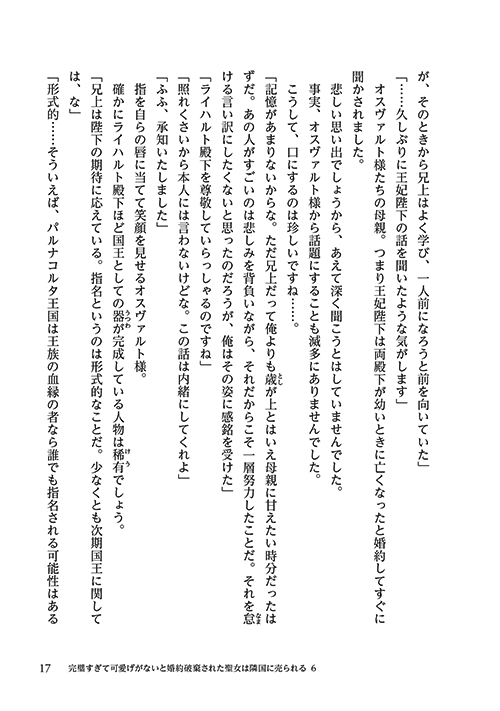 が、そのときから兄上はよく学び、一人前になろうと前を向いていた」
「……久しぶりに王妃陛下の話を聞いたような気がします」
オスヴァルト様たちの母親。つまり王妃陛下は両殿下が幼いときに亡くなったと婚約してすぐに
聞かされました。
悲しい思い出でしょうから、あえて深く聞こうとはしていませんでした。
事実、オスヴァルト様から話題にすることも滅多にありませんでした。
こうして、口にするのは珍しいですね……。
「記憶があまりないからな。ただ兄上だって俺よりも歳とし が上とはいえ母親に甘えたい時分だったは
ずだ。あの人がすごいのは悲しみを背負いながら、それだからこそ一層努力したことだ。それを怠なま
ける言い訳にしたくないと思ったのだろうが、俺はその姿に感銘を受けた」
「ライハルト殿下を尊敬していらっしゃるのですね」
「照れくさいから本人には言わないけどな。この話は内緒にしてくれよ」
「ふふ、承知いたしました」
指を自らの唇に当てて笑顔を見せるオスヴァルト様。
確かにライハルト殿下ほど国王としての器うつわが完成している人物は稀有けうでしょう。
「兄上は陛下の期待に応えている。指名というのは形式的なことだ。少なくとも次期国王に関して
は、な」
「形式的……そういえば、パルナコルタ王国は王族の血縁の者なら誰でも指名される可能性はある
17 完璧すぎて可愛げがないと婚約破棄された聖女は隣国に売られる 6